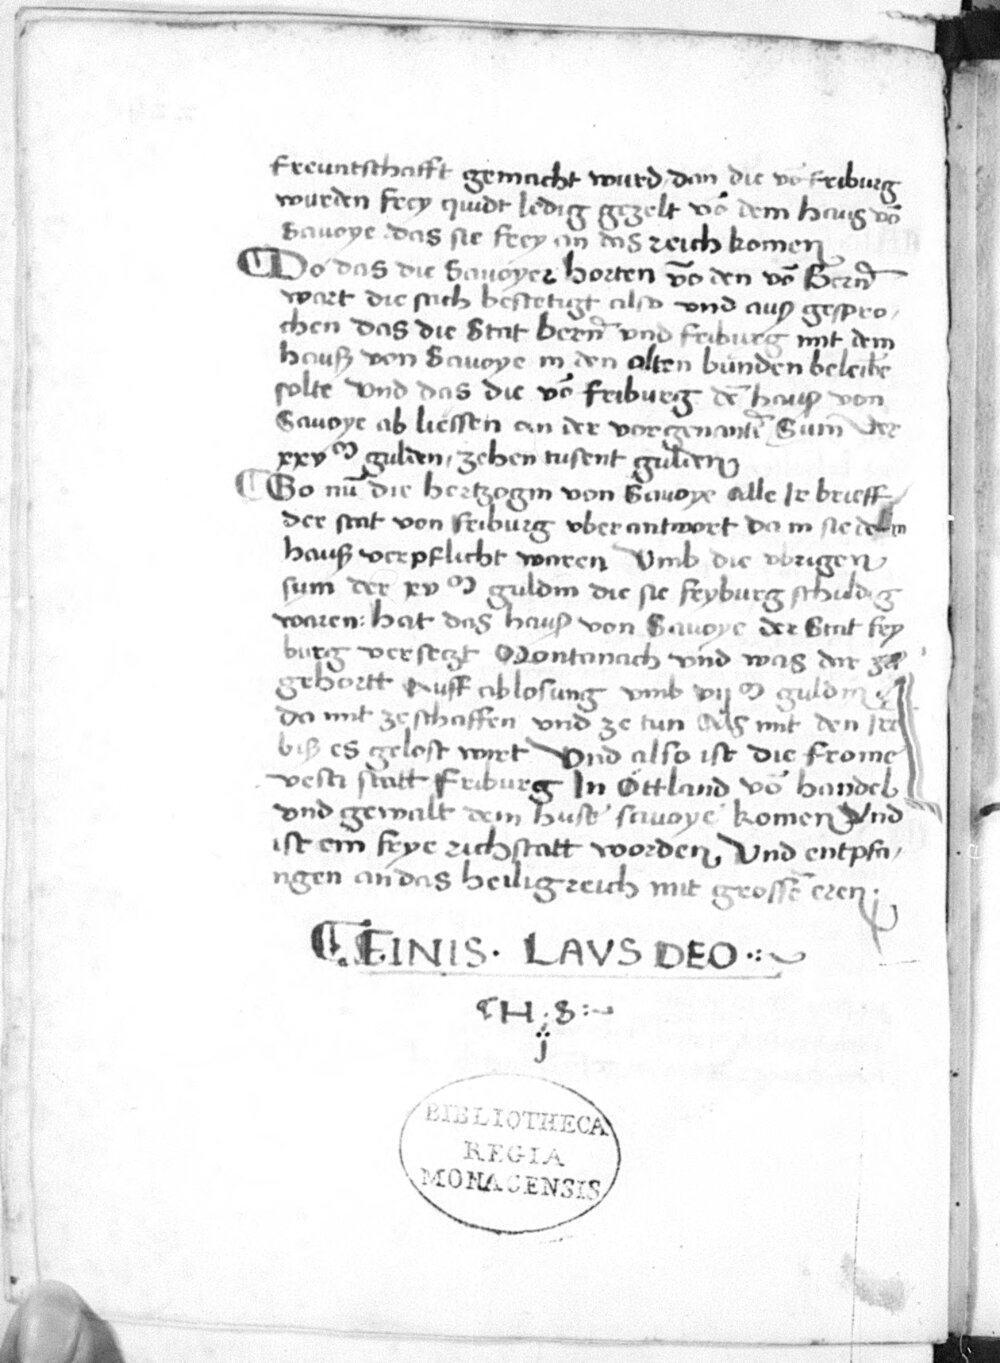 freuntschafft gemacht wurd, dan die vō Friburg
wurden frey quidt ledig gezelt vō dem haus vō
Savoye. das sie frey an das reich komen
Do das die Savoyer horten vō den vō Bern̄
wart die sach bestetigt also vnd auß gespro/
chen das die Stat bern̄ vnd friburg mit dem
hauß von Savoye in den alten bünden beleibē
solte Vnd das die vō friburg dē hauß von
Savoye ab liessen an der vorgenantē Sum der
xxv M gulden, zehen tusent gulden
So nū die hertzogin von Savoye alle Ir brieff
der stat von friburg vber antwort da in sie dem
hauß verpflicht waren Vmb die vbrigen
sum der xv M guldin die sie feyburg schuldig
waren: hat das hauß von Savoye der Stat fey
burg versetzt Montanach vnd was dar zu
gehortt Auff ablosung vmb vij M guldin
da mit ze schaffen vnd ze tun Als mit den Ire
biß es gelost wirt Vnd also ist die frome
vesti statt Friburg In Ottland vō handel
vnd gewalt dem huse savoye komen Vnd
ist ein feye richstatt worden, Vnd entpfa/
ngen an das heilig reich mit grossē eren
FINIS. LAVS DEO
H. S
j
BIBLIOTHECA
REGIA
MONACENSIS